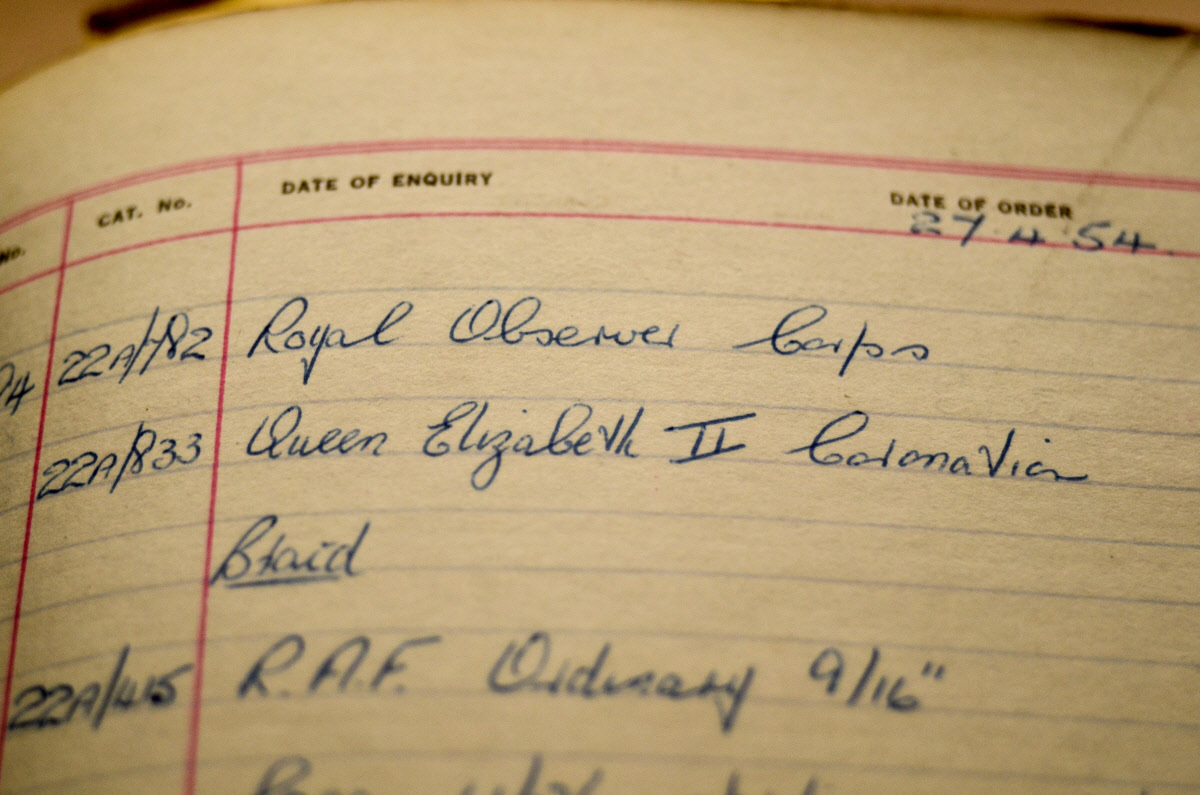 No. CAT. No. DATE OF ENQUIRY DATE OF ORDER
27.4.54.
22A/782 Royal Observer Corps
22A/833 Queen Elizabeth II Coronation
Braid
22A/415 R.A.F. Ordinary 9/16"